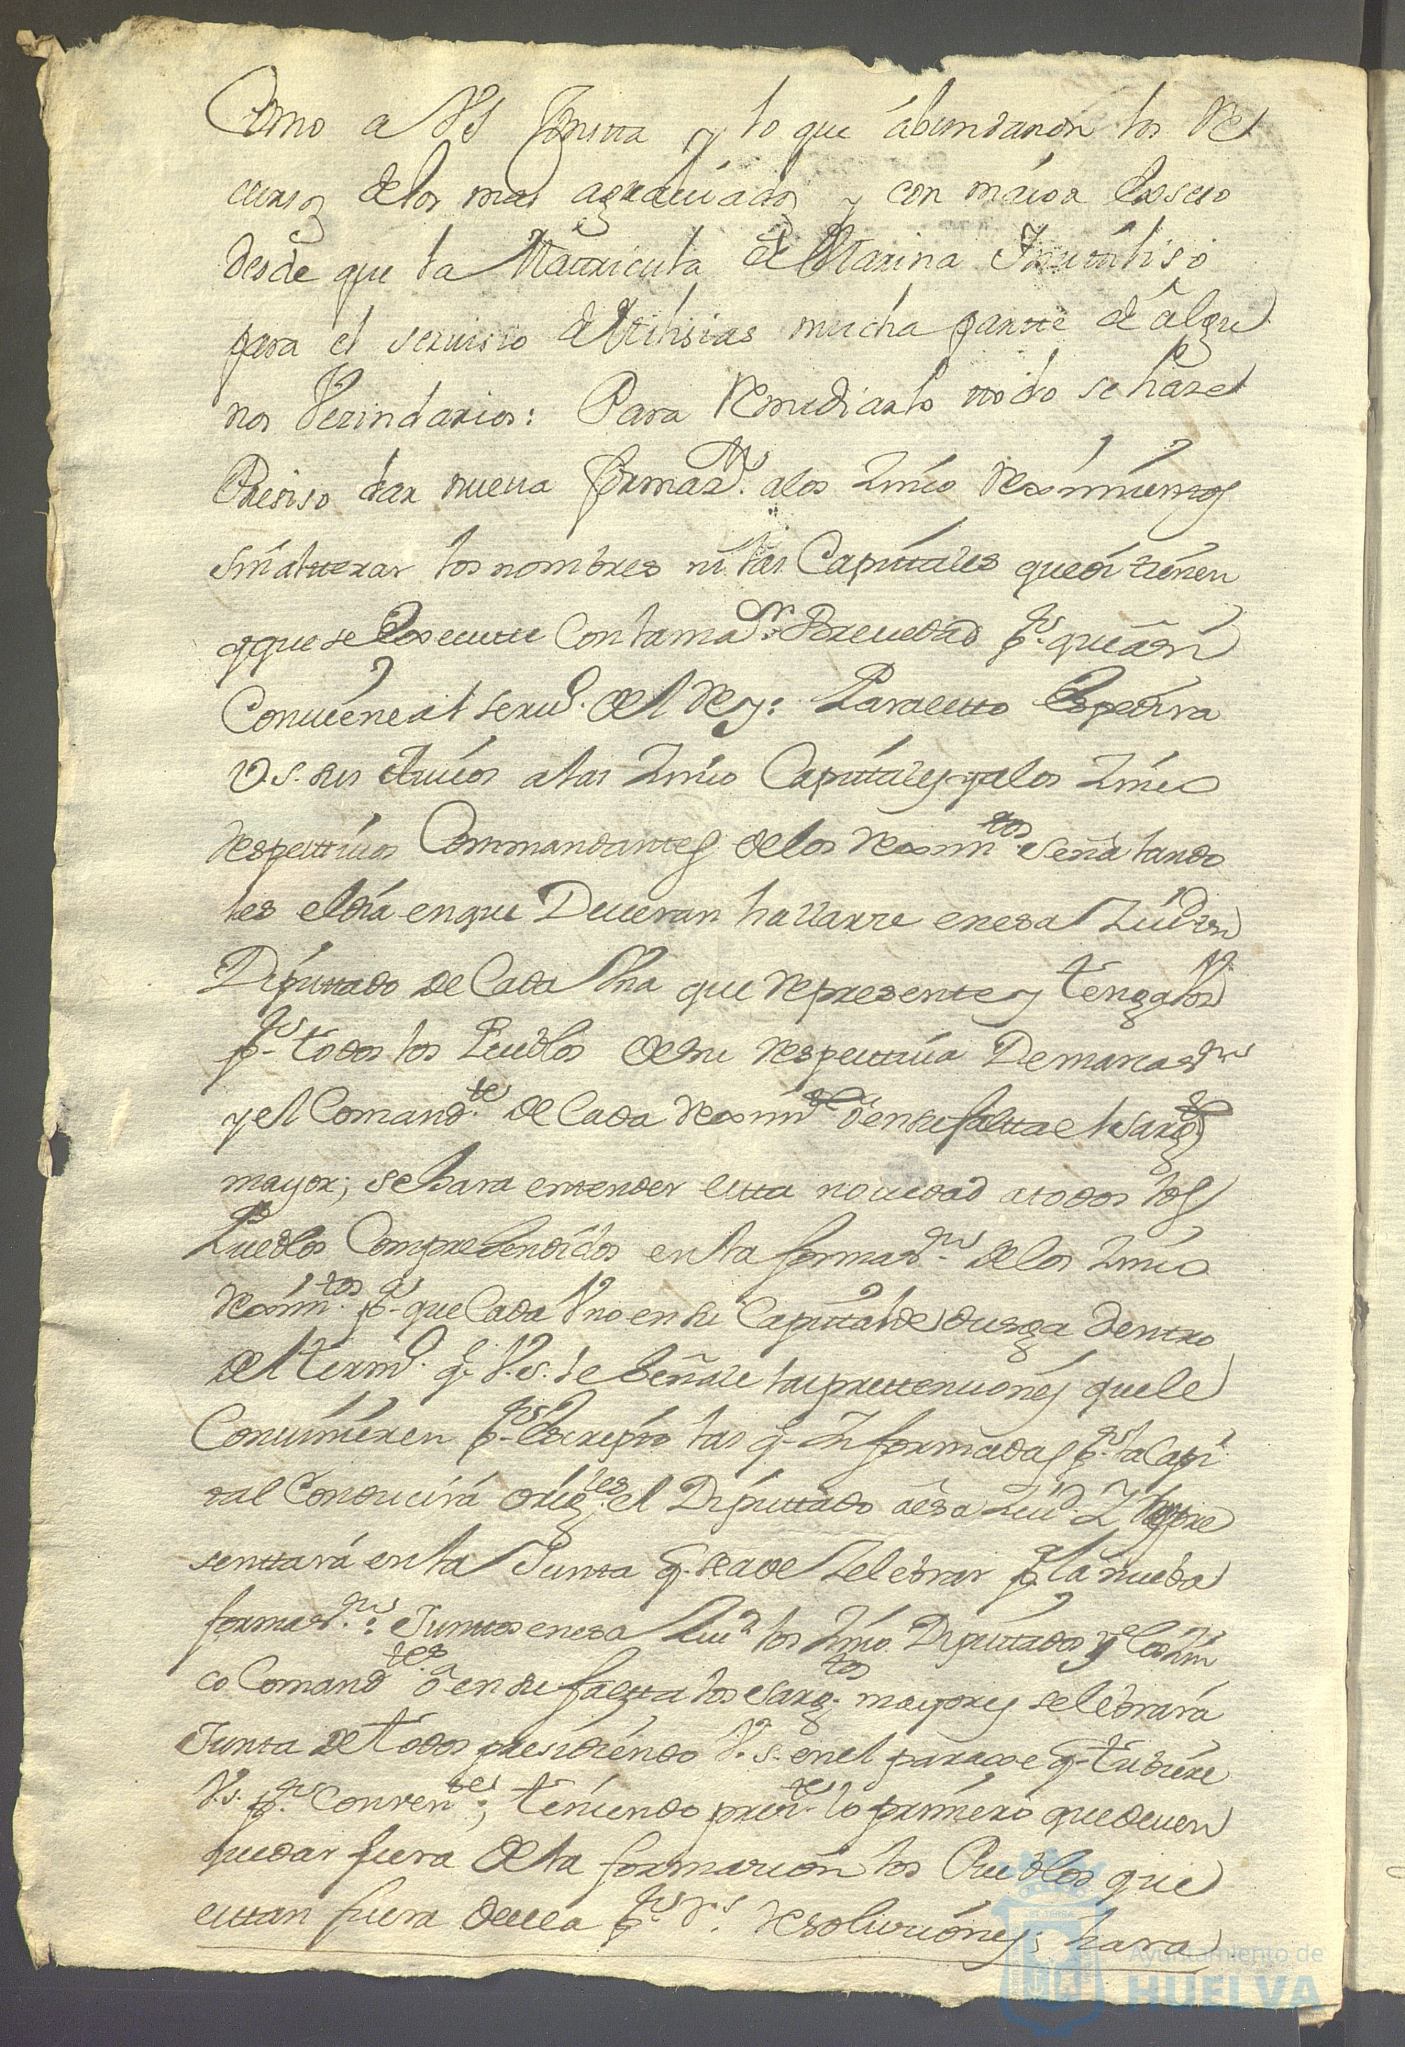 Como a VS Consta y lo que ábundanon los Re
cursos de los mas agraviados y con maior Exseso
desde que la Matricula de Marina Inutiliso
para el servisio de Milisias mucha partte de álgu
nos Vezindarios: Para Remediarlo ttodo se haze
Presiso dar nueva formaz.on alos Zinco Reximientos
sin altterar los nombres ni las Capittales que oi tienen
y que se Exsecutte Con la maior Brevedad p.r que ási
Conviene al serv.o del Rey: Para etto Espedira
V.S. sus Avisos a las Zinco Capitales y alos Zinco
respecttivos Commandantes de los Reximtos señalando
les el dia en que Deveran hallarse en esa Ziud un
Diputtado de Cada Una que represente y tenga Voz
p.r todos los Pueblos de su respecttiva Demarcasion
y el Comand.te de Cada Reximto o en su faltta el Sargto
mayor; se hara entender estta novedad a todos los
Pueblos Comprehendidos en la formas.on de los Zinco
Reximtos p.a que Cada Uno en su Capital deduzga dentro
del term.o q.e V.S. le señale las prettensiones que le
Convinieren p.r Escripto las q.e Informadas p.r la Capi
tal Conducirá orig.les el Diputtado á esa Ziud. Y Repre
senttará en la Junta q.e se a de Zelebrar p.a la nueba
formas.on: Junttos en esa Ziud los Zinco Diputtados y los Zin
co Comand.tes o en su faltta los Sarg.tos mayores selebrará
Junta de todos presidiendo V.S. en el paraxe q.e tubiere
V.S. p.r Conven.te; teniendo pres.te lo primero que deven
quedar fuera de la formacion los Pueblos que
esttan fuera de ella p.r R.s resoluciones; hara
Ayuntamiento de
HUELVA